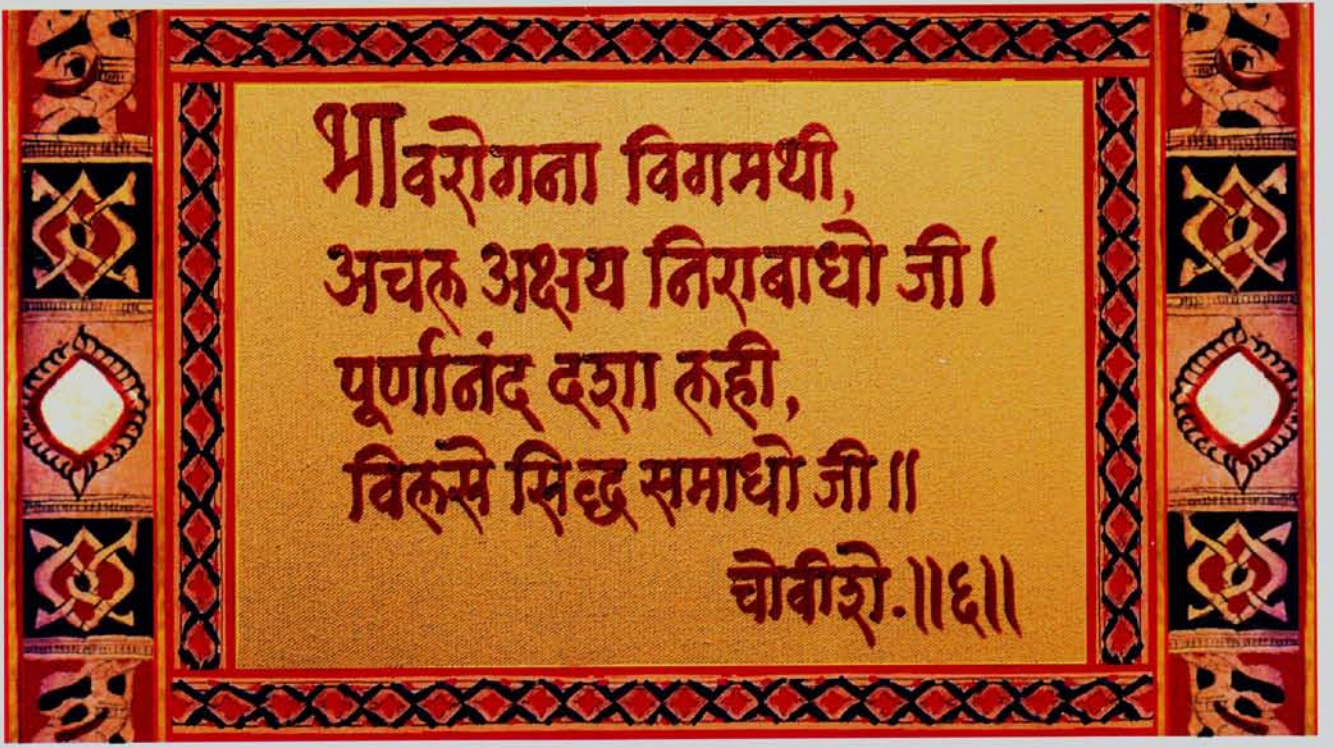 भावरोगना विगमथी,
अचल अक्षय निराबाधो जी।
पूर्णानंद दशा लही,
विलसे सिद्ध समाधो जी॥
चोवीशे.॥६॥